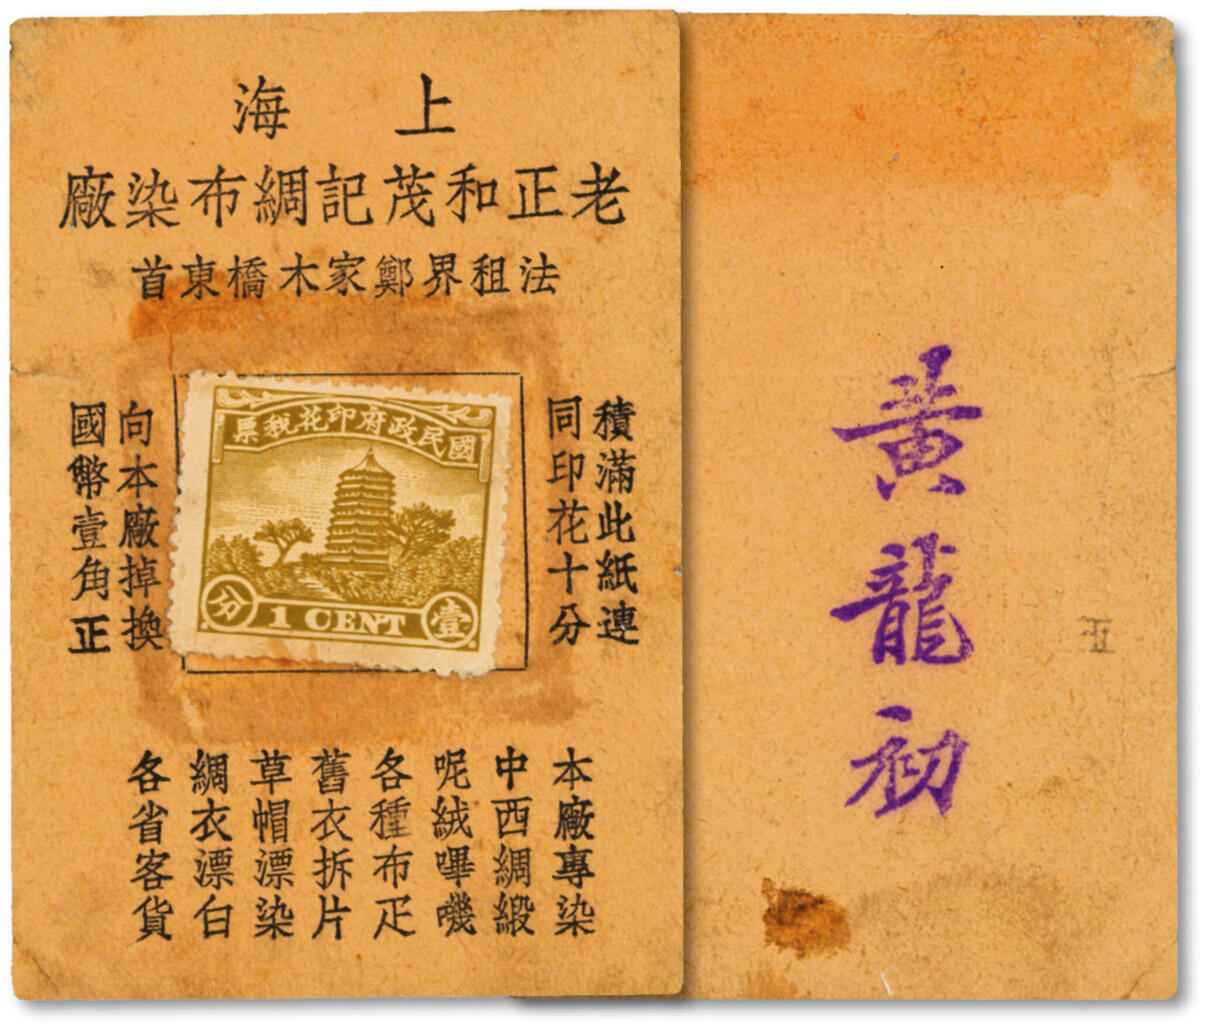 上海
老正和茂記綢布染廠
法租界鄭家木橋東首
積滿此紙連
同印花十分
向本廠掉換
國幣壹角正
國民政府印花稅票
壹 1 CENT 分
本廠專染
中西綢緞
呢絨嗶嘰
各種布疋
舊衣拆片
草帽漂染
綢衣漂白
各省客貨
黃龍初